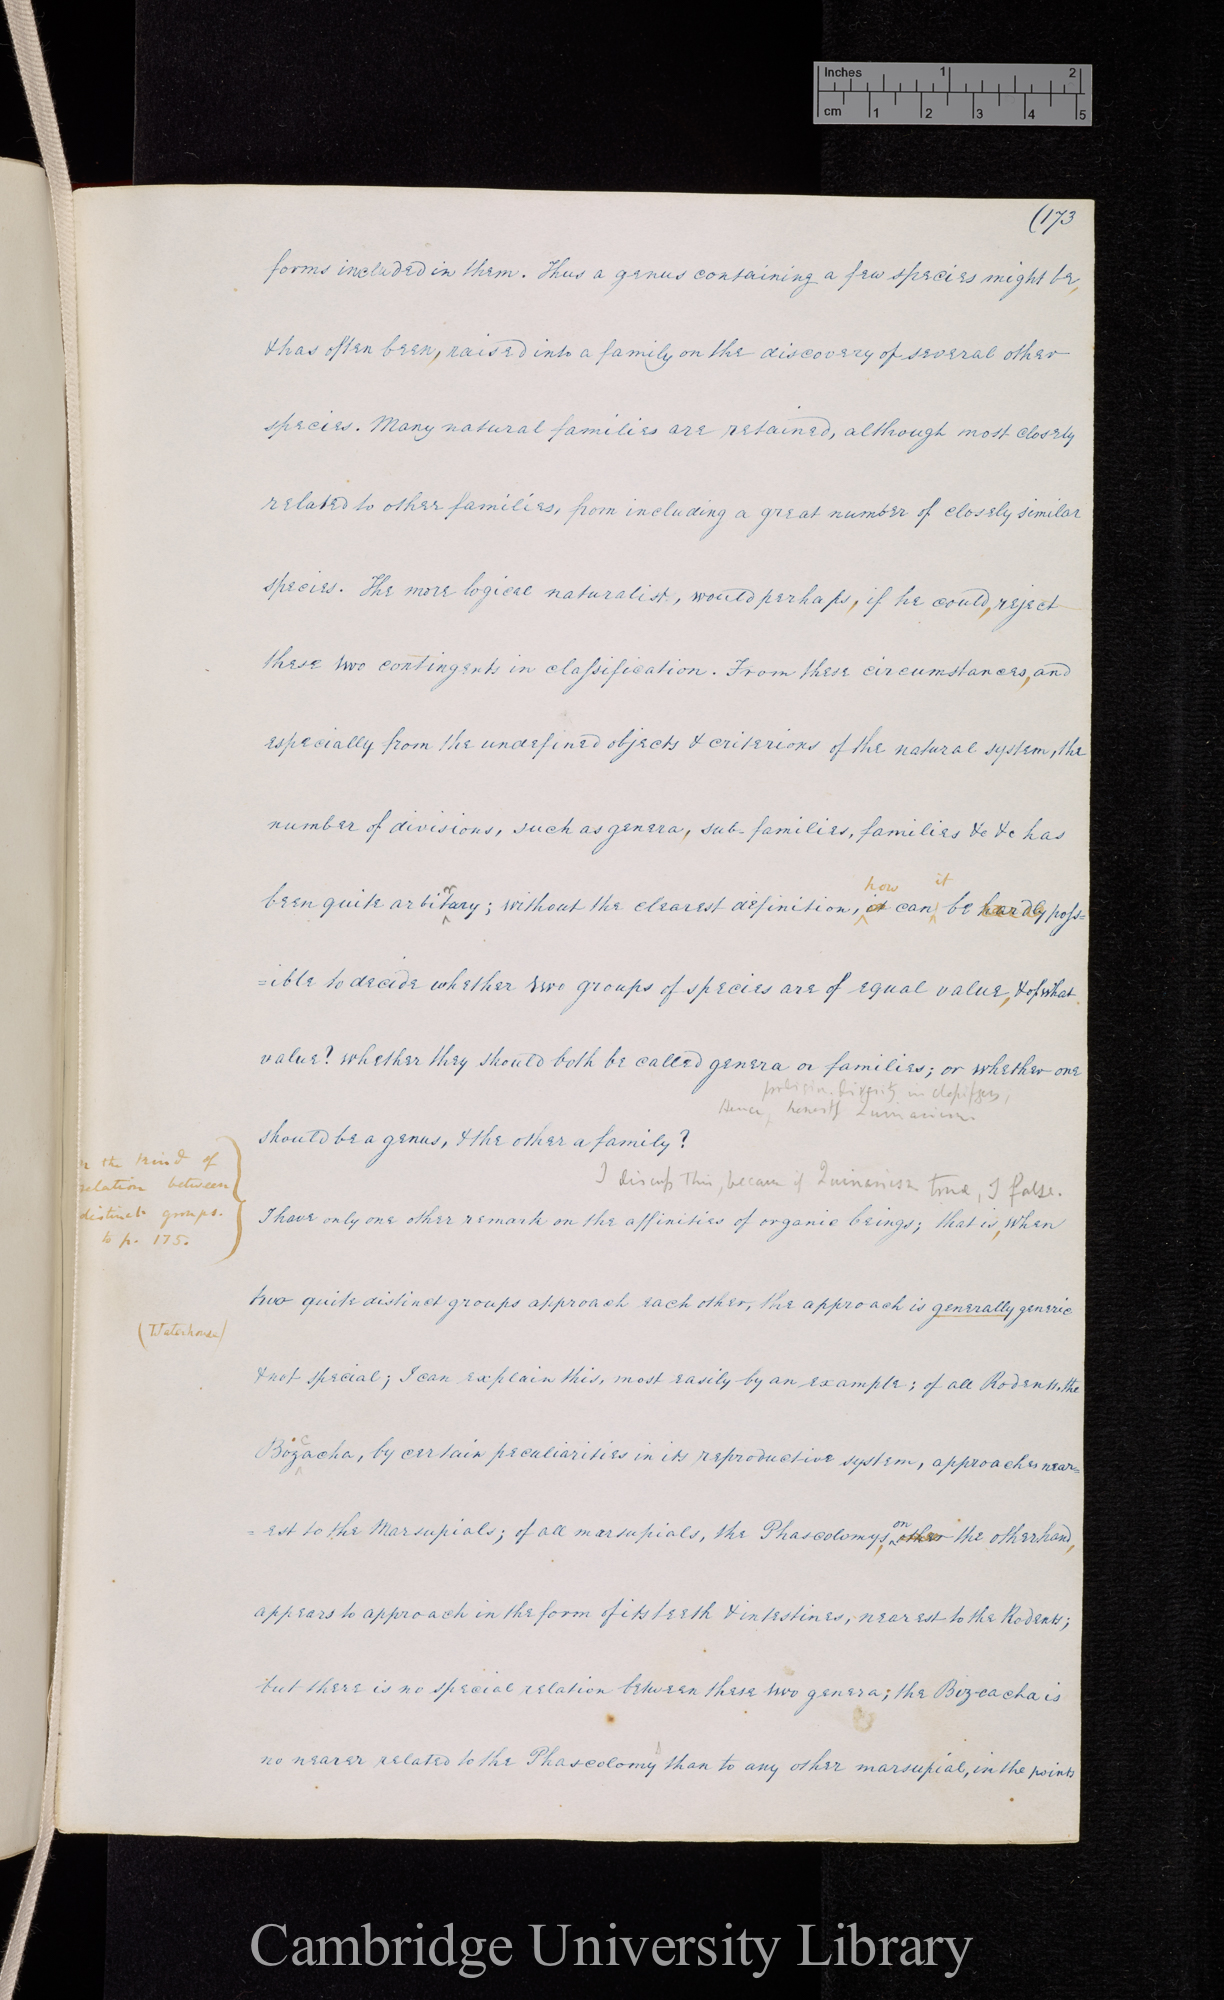 Inches 1 2
cm 1 2 3 4 5
(173
forms included in them. Thus a genus containing a few species might be,
& has often been, raised into a family on the discovery of several other
species. Many natural families are retained, although most closely
related to other families, from including a great number of closely similar
species. The more logical naturalist, would perhaps, if he could, reject
these two contingents in classification. From these circumstances, and
especially from the undefined objects & criterions of the natural system, the
number of divisions, such as genera, sub-families, families &c &c has
how it
been quite arbitrary; without the clearest definition, it can be hardly poss=
=ible to decide whether two groups of species are of equal value, & of what
value? whether they should both be called genera or families; or whether one
Hence, Quinarism
should be a genus, & the other a family?
I discuss this, because if Quinarism true, I false.
the kind of
relation between
distinct groups.
to p. 175.
I have only one other remark on the affinities of organic beings; that is, when
two quite distinct groups approach each other, the approach is generally generic
(Waterhouse)
& not special; I can explain this, most easily by an example; of all Rodents, the
Bizcacha, by certain peculiarities in its reproductive system, approaches near=
=est to the Marsupials; of all marsupials, the Phascolomys, on other the other hand,
appears to approach in the form of its teeth & intestines, nearest to the Rodents;
but there is no special relation between these two genera; the Bizcacha is
no nearer related to the Phascolomy than to any other marsupial, in the points
Cambridge University Library